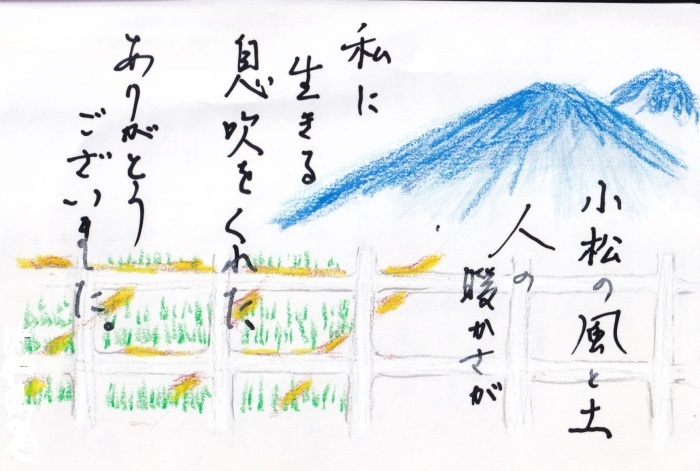 小松の風と土
人の
暖かさが
私に
生きる
息吹をくれた、
ありがとう
ございました。